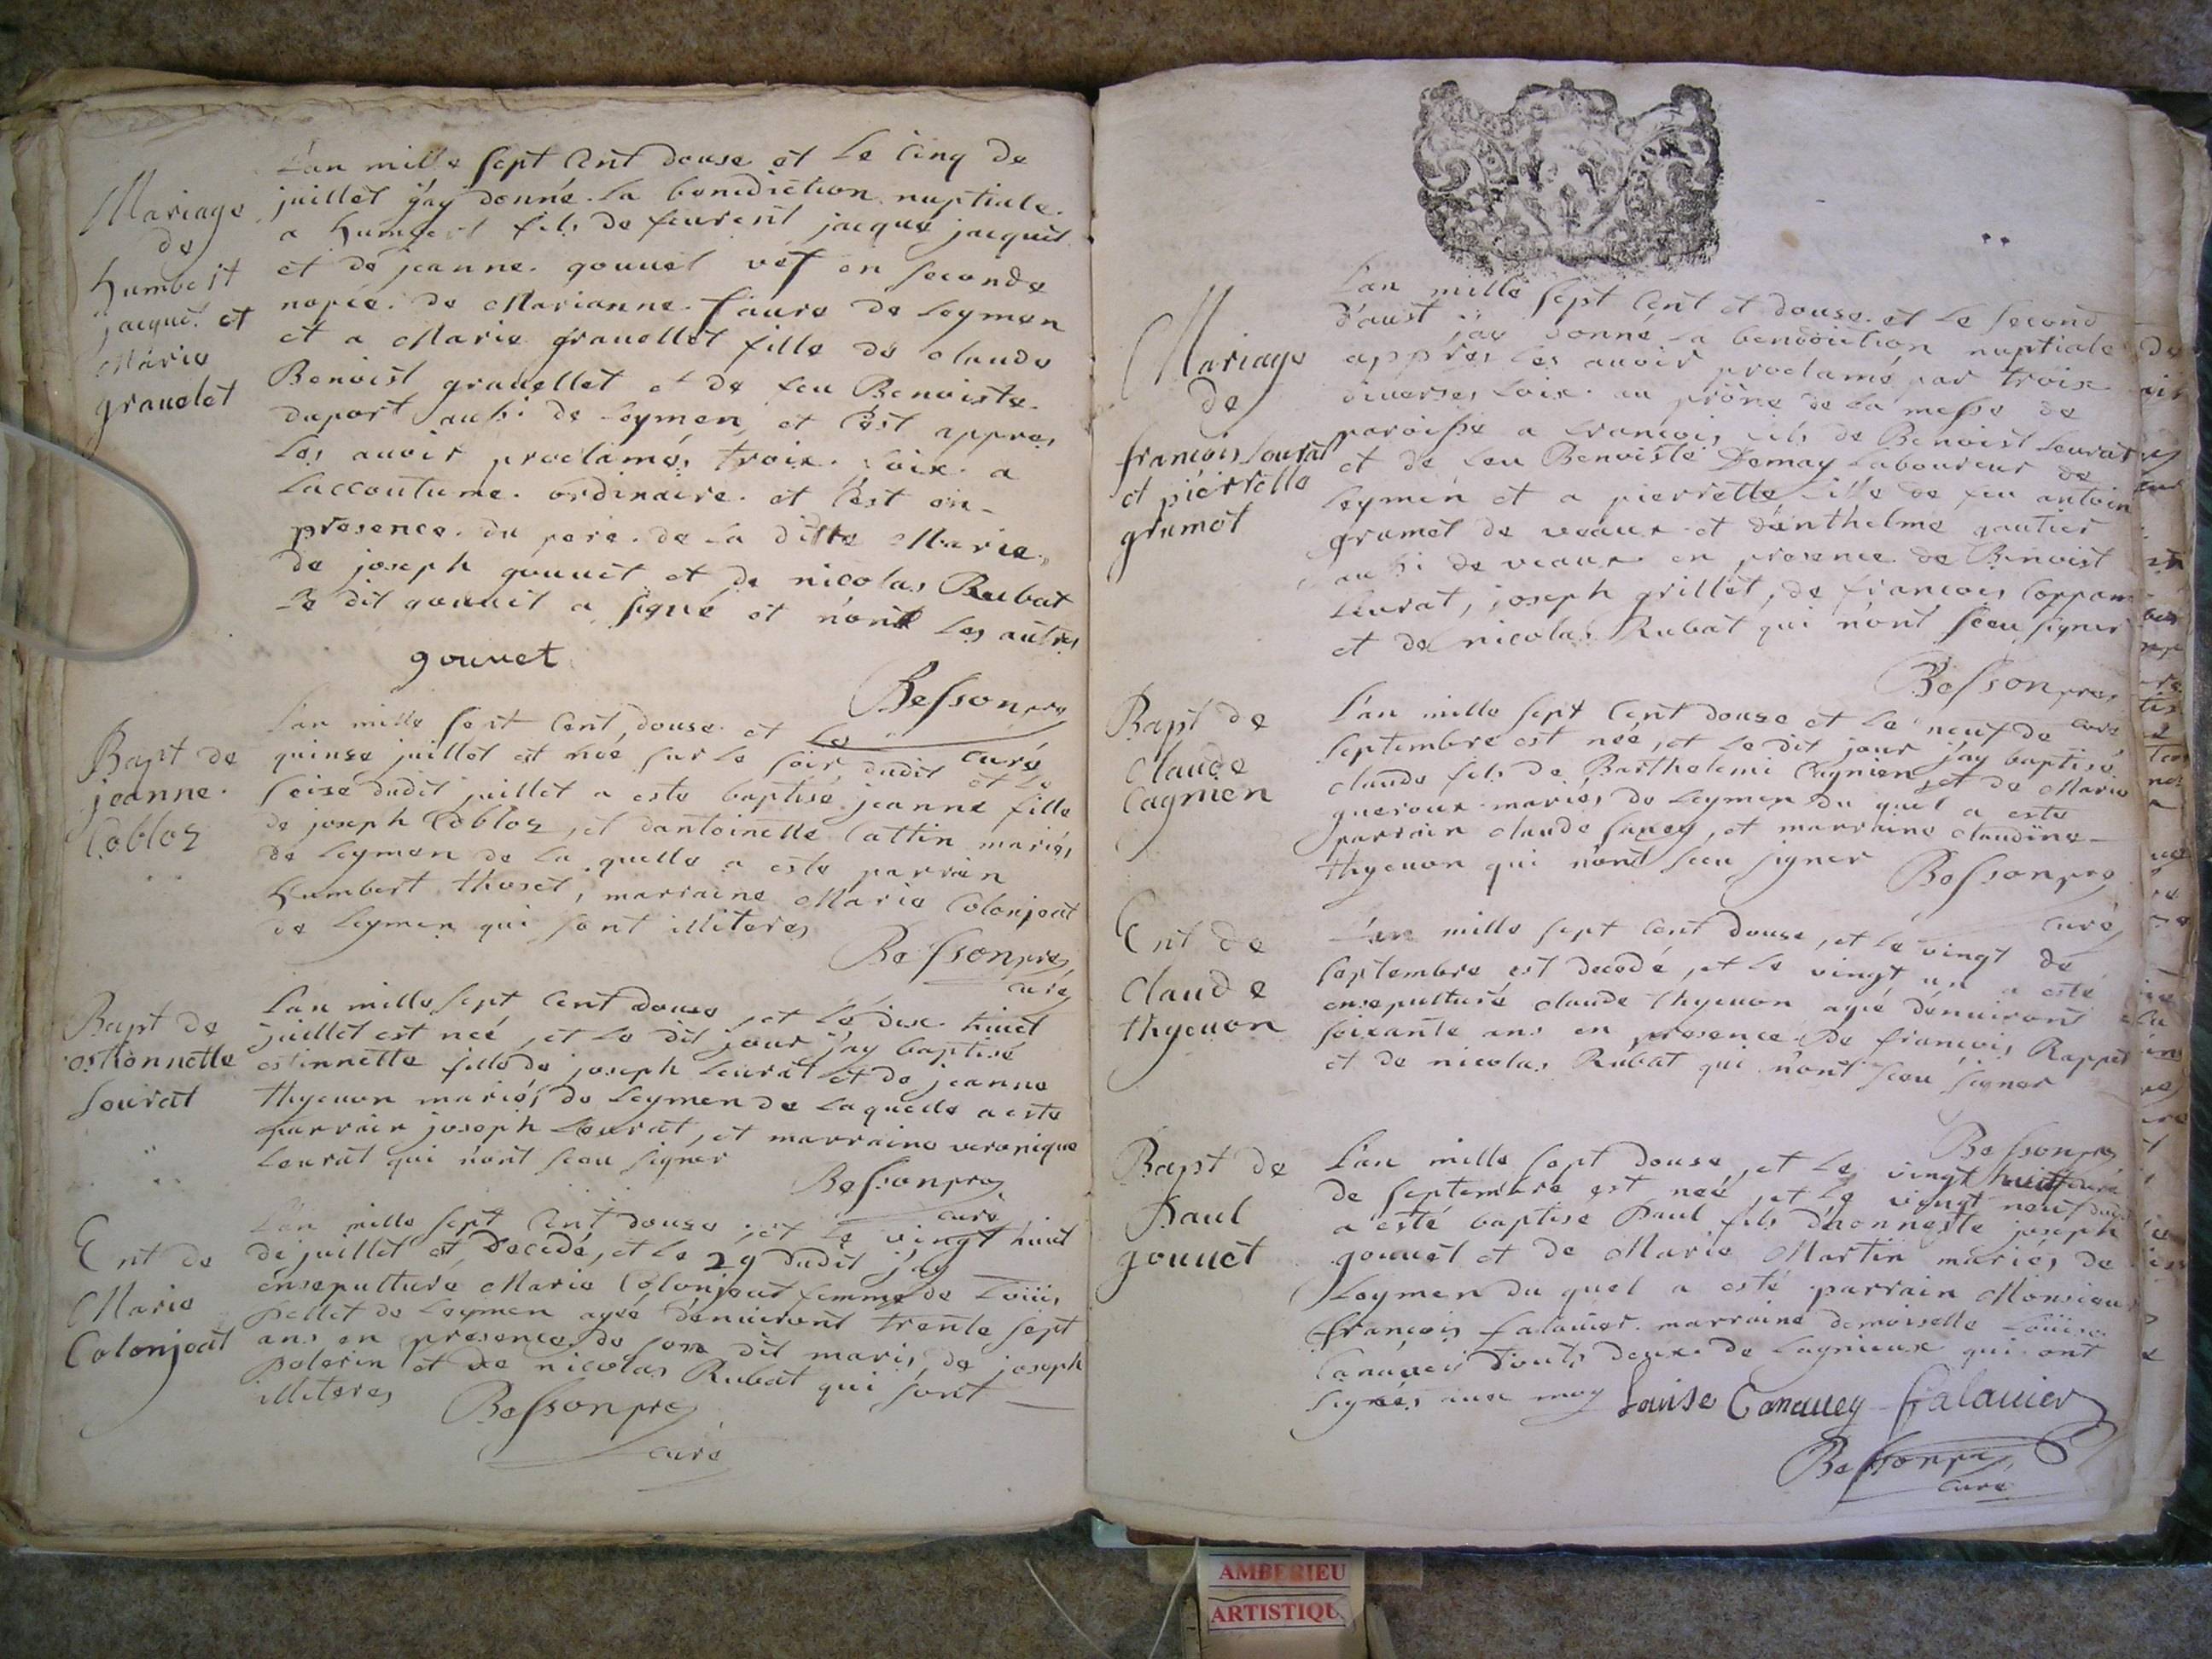 Mariage
de
humbert
jacquet et
Marie
grauelet
L'an mille sept cent douse et le cinq de
juillet j'ay donné la benediction nuptiale
a humbert fils de feurent jacque jacquet
et de jeanne gouuet vef en seconde
nopce de Marianne faure de leymen
et a Marie grauellet fille de claude
Benoist grauellet et de feu Benoiste
duport aussi de leymen, et c'est appres
les auoir proclamés trois foix a
laccoutume ordinaire et c'est en
presence du pere de la ditte Marie
de joseph gouuet et de nicolas Rubat
le dit gouuet a signé et n'ont les autres
gouuet
Bessonpre
curé
Bapt de
jeanne
Cobloz
L'an mille sept cent douse et le
quinse juillet est née sur le soir dudit et le
seise dudit juillet a esté baptisé jeanne fille
de joseph Cobloz, et dantoinette lattin mariés
de leymen de la quelle a esté parrain
humbert thoset, marraine Marie Colonjeat
de leymen qui sont illiteres
Bessonpre
curé
Bapt de
estionnette
Leurat
L'an mille sept cent douse, et le dix huict
juillet est neé, et le dit jour j'ay baptisé
estinnette fille de joseph Leurat et de jeanne
thyeuon mariés de leymen de laquelle a esté
parrain joseph Leurat, et marraine veronique
Leurat qui n'ont sceu signer
Bessonpre
curé
Ent de
Marie
Colonjeat
L'an mille sept cent douse, et le vingt huict
de juillet est decedé, et le 29 dudit j'ay
ensepulturé Marie Colonjeat femme de Loüis
pellet de leymen ageé d'enuiront trente sept
ans en presence de son dit maris, de joseph
polerin et de nicolas Rubat qui sont
illiteres
Bessonpre
curé
Mariage
de
francois Leurat
et pierrette
grumet
L'an mille sept cent et douse et le second
d'aust j'ay donné la benediction nuptiale
appres les auoir proclamé par troix
diuerses foix au prône de la messe de
paroisse a francois fils de Benoist Leurat
et de feu Benoiste Demay laboureur de
leymen et a pierrette fille de feu antoin
grumet de veaux et d'enthelme gautier
aussi de veaux en presence de Benoist
Leurat, joseph grillet, de francois Coppan
et de nicolas Rubat qui n'ont sceu signer
Bessonpre
curé
Bapt de
Claude
Cagnien
L'an mille sept cent douse et le neuf de
septembre est née, et le dit jour j'ay baptisé
claude fils de Barthelemi Cagnien, et de Marie
gueroux mariés de leymen du quel a esté
parrain claude sancy, et marraine claudine
thyeuon qui n'ont sceu signer
Bessonpre
curé
Ent de
Claude
thyeuon
L'an mille sept cent douse, et le vingt de
septembre est decedé, et le vingt un a esté
ensepulturé claude thyeuon agé d'enuiront
soixante ans en presence de francois Rappet
et de nicolas Rubat qui n'ont sceu signer
Bessonpre
curé
Bapt de
Paul
gouuet
L'an mille sept douse, et le vingt huitt
de septembre est neé, et le vingt neuf dudit
a esté baptisé Paul fils d'honneste joseph
gouuet et de Marie Martin mariés de
Leymen du quel a esté parrain Monsieur
françois falauier marraine demoiselle Loüise
Canauey touts deux de lagnieux qui ont
signés aux moy
Louise Canauey
falauier
Bessonpre
curé
AMBERIEU
ARTISTIQU